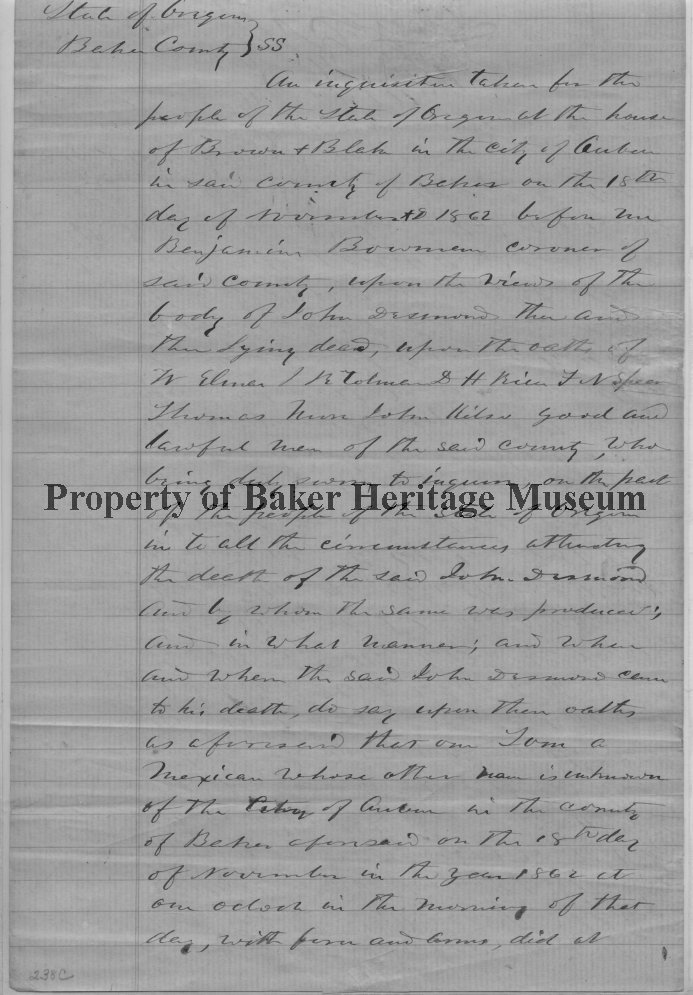 State of Oregon
Baker County } SS
An inquisition taken for the
people of the State of Oregon at the house
of Brown & Blake in the city of Auburn
in said county of Baker on the 18th
day of November AD 1862 before me
Benjamin Bowman coroner of
said county, upon the views of the
body of John Desmond then and
there lying dead, upon the oaths of
W Elmer J R Tolman D H F N Speer
Thomas John good and
lawful men of the said county, who
being duly sworn to inquire, on the part
Property of Baker Heritage Museum
of the people of the State of Oregon
in to all the circumstances attending
the death of the said John Desmond
and by whom the same was produced;
and in what manner; and when
and where the said John Desmond came
to his death, do say upon their oaths
as aforesaid that one Tom a
Mexican whose other name is unknown
of the City of Auburn in the county
of Baker aforesaid on the 18th day
of November in the year 1862 at
one oclock in the morning of that
day, with force and arms, did at
238C